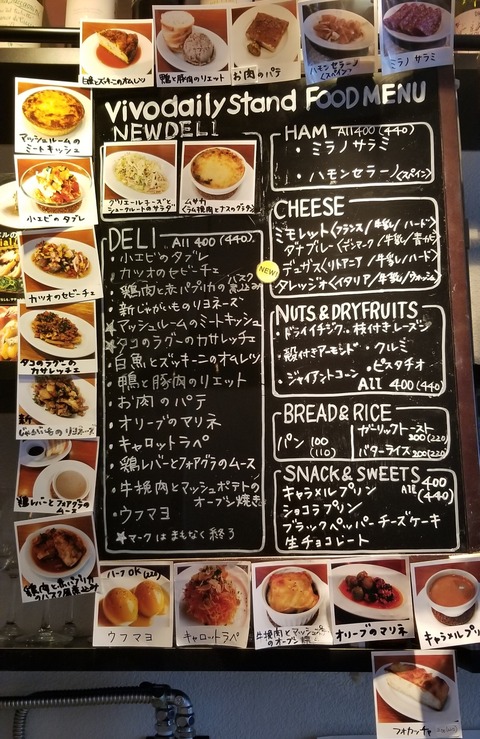 白魚とズッキーニのオムレツ
鴨と豚肉のリエット
お肉のパテ
ハモンセラーノ
(スペイン)
ミラノ サラミ
マッシュルームの
ミートキッシュ
小エビのタブレ
カツオのセビーチェ
タコのラグーの
カサレッチェ
じゃがいものリヨネーズ
鶏レバーとフォアグラの
ムース
鶏肉と赤パプリカの
vivo daily stand FOOD MENU
NEW DELI
グリエールチーズと
シュークルートのサラダ
ムサカ
(ラム挽肉とナスのグラタン)
DELI All 400 (440)
・小エビのタブレ
・カツオのセビーチェ
・鶏肉と赤パプリカの煮込み
バスク
・新じゃがいものリヨネーズ
★マッシュルームのミートキッシュ
★タコのラグーのカサレッチェ
・白魚とズッキーニのオムレツ
・鴨と豚肉のリエット
・お肉のパテ
・オリーブのマリネ
・キャロットラペ
・鶏レバーとフォアグラのムース
・牛挽肉とマッシュポテトの
オーブン焼き
・ウフマヨ
★マークはまもなく終了
HAM All 400 (440)
・ミラノサラミ
・ハモンセラーノ(スペイン)
CHEESE
ミモレット〈フランス/牛乳/ハード〉
ダナブルー〈デンマーク/牛乳/青カビ〉
NEW!
デュガス〈リトアニア/牛乳/ハード〉
タレッジオ〈イタリア/牛乳/ウォッシュ〉
NUTS & DRYFRUITS
・ドライイチジク ・枝付きレーズン
・殻付きアーモンド ・クルミ
・ジャイアントコーン ・ピスタチオ
All 400 (440)
BREAD & RICE
パン 100
(110)
ガーリックトースト
200 (220)
バターライス 200 (220)
SNACK & SWEETS 400
All (440)
キャラメルプリン
ショコラプリン
ブラックペッパーチーズケーキ
生チョコレート
ハーフOK (220)
ウフマヨ
キャロットラペ
牛挽肉とマッシュポテト
のオーブン焼き
オリーブのマリネ
キャラメルプリ
フォカッチャ